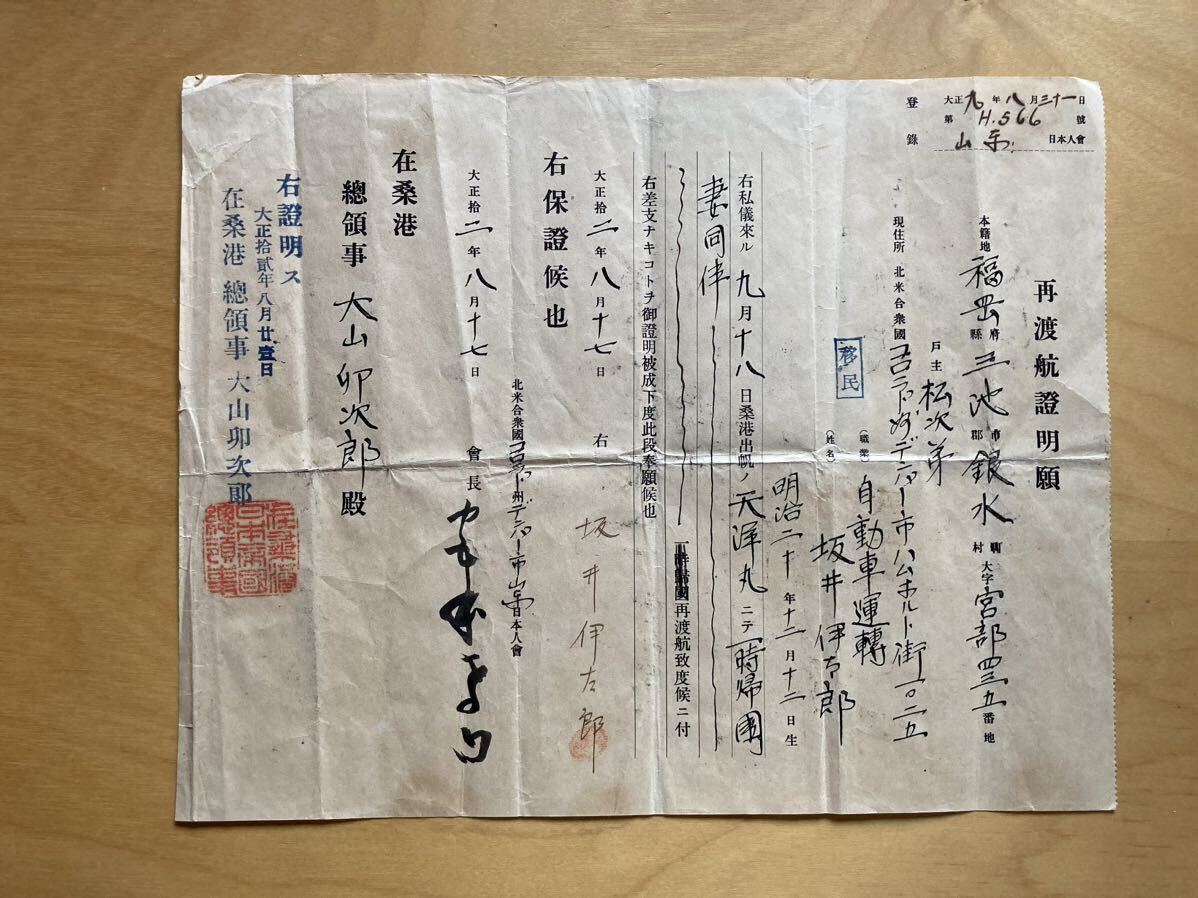 登錄
大正九年八月三十一日
第H.566號
山東日本人會
再渡航證明願
本籍地 福岡府縣三池市郡銀水町村大字宮部四三五番地
戸主 松次弟
現住所 北米合衆國コロラド州デンバー市公ホルト街一〇二五
移民
(職業) 自動車運轉
(姓名) 坂井伊太郎
明治二十年十二月十二日生
右私儀來ル九月十八日桑港出帆ノ天洋丸ニテ一時帰国
妻同伴
一時歸國再渡航致度候ニ付
右差支ナキコトヲ御證明被成下度此段奉願候也
大正拾二年八月十七日 右 坂井伊太郎
右保證候也
北米合衆國コロラド州デンバー市山東日本人會
大正拾二年八月十七日 會長
在桑港
總領事 大山卯次郎殿
右證明ス
大正拾貳年八月廿壹日
在桑港 總領事 大山卯次郎
在桑港日本帝國總領事